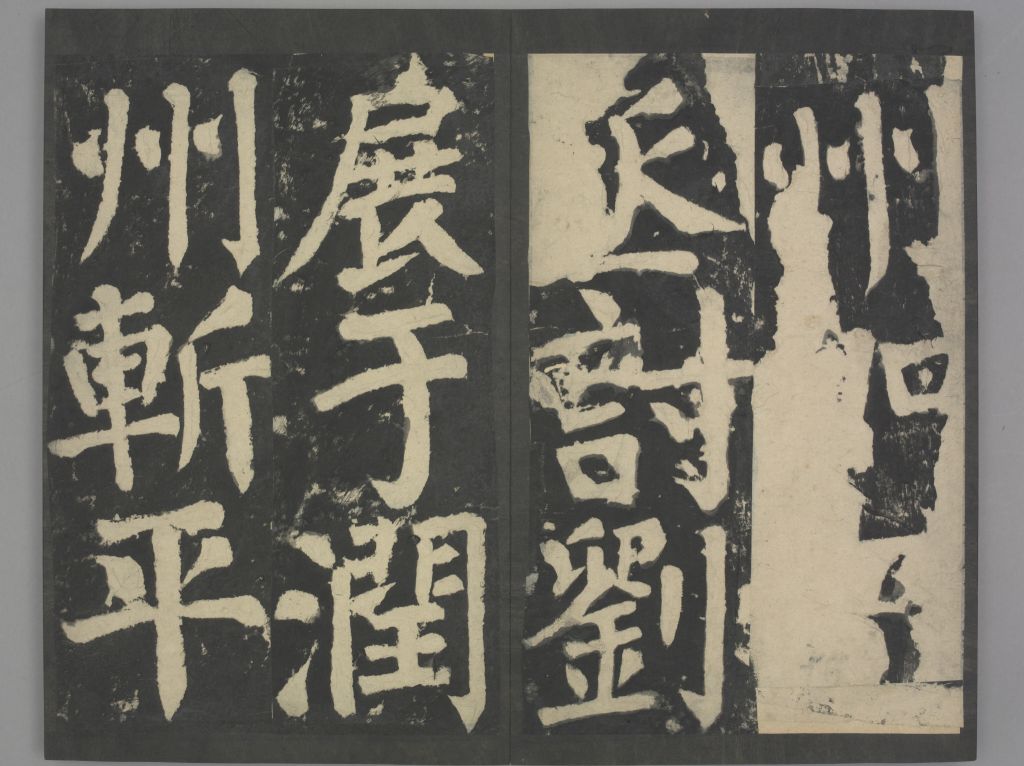 州
丞討劉
展于潤
州斬平